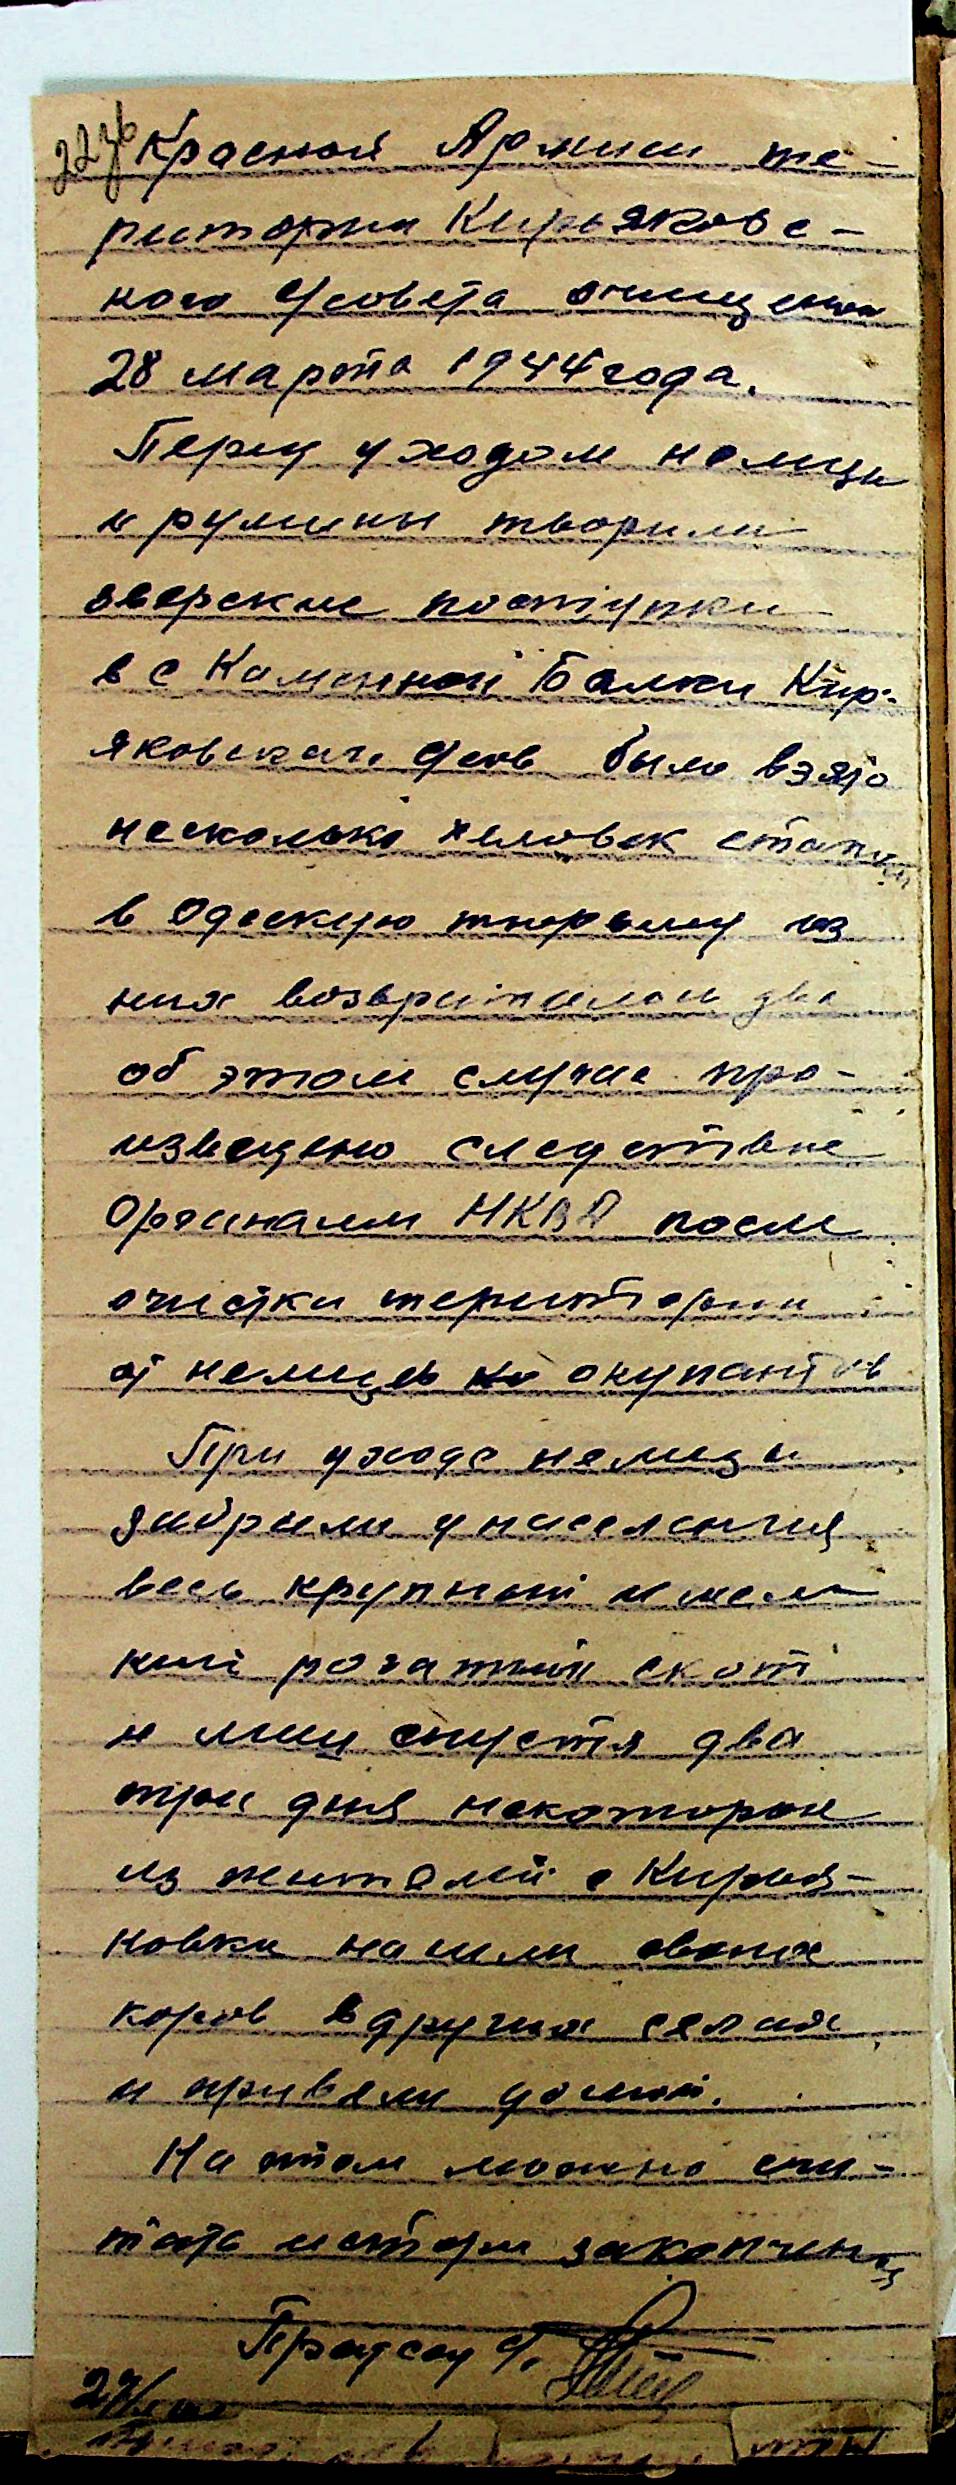 Красной Армии те-
ритории Кирьяковс-
кого с/совета очищена
28 марта 1944 года.
Перед уходом немцы
и румыны творили
зверские поступки
в с Каменной Балки Кир-
яковского с/сов было взято
несколько человек
в Одескую тюрьму из
них возвратилось два
об этом случае про-
изведено следствие
Органами НКВД после
очистки територии
от немецко окупантов
При уходе немцы
забрали у населения
весь крупный и мел
кий рогатый скот
и лиш спустя два
три дня некоторые
из жителей с Кирья-
ковки нашли своих
коров в других селах
и привели домой.
На этом можно счи-
тать истори